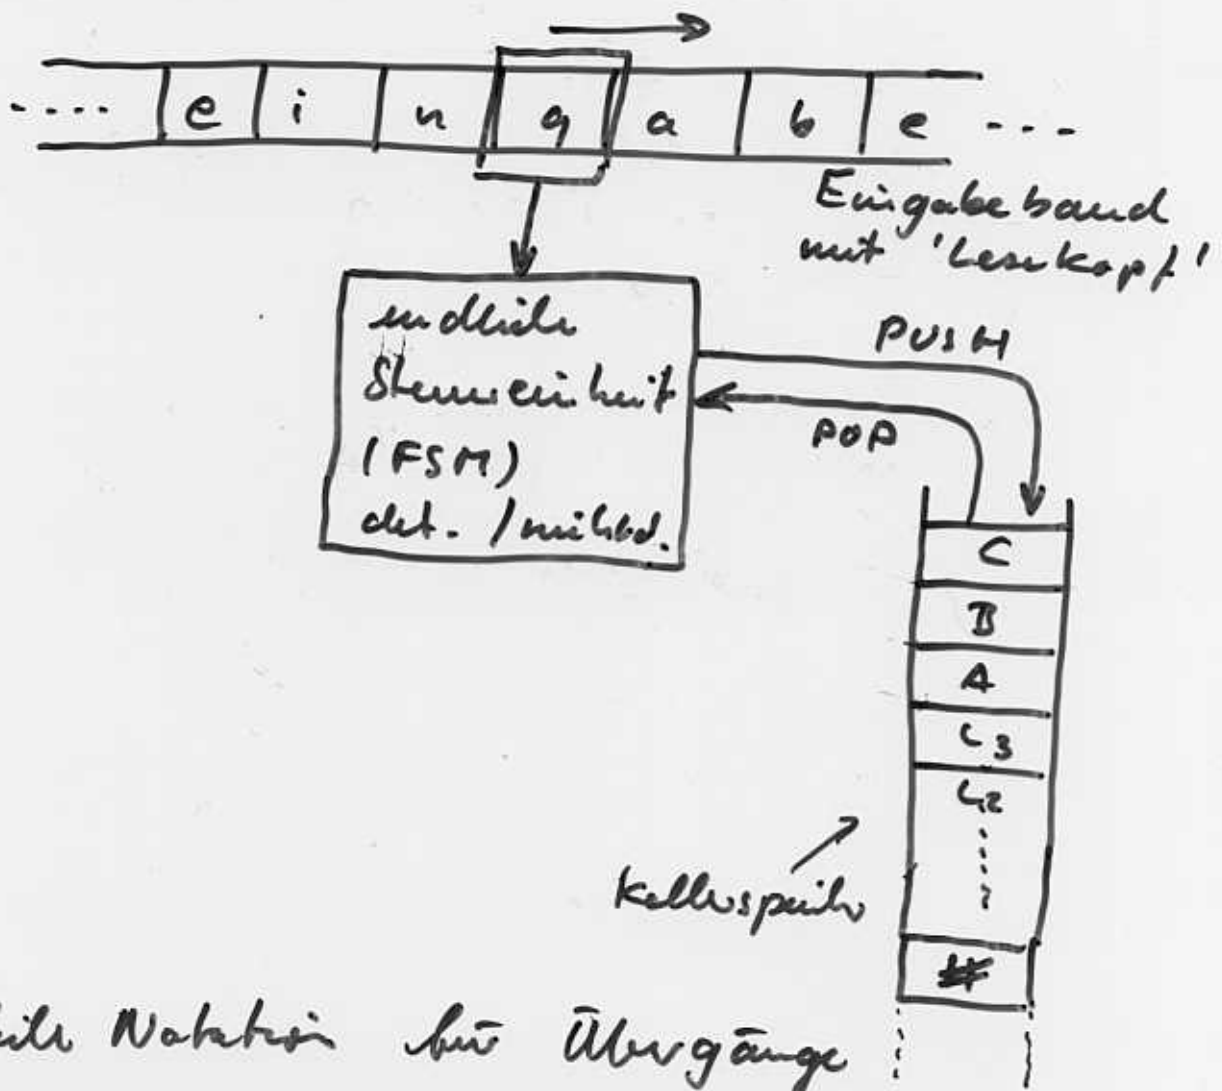 .... e i n g a b e ...
Eingabeband
mit 'Lesekopf'
endliche
Steuereinheit
(FSM)
det. / nichtd.
PUSH
POP
C
B
A
C3
C2
Kellerspeicher
#
Notation für Übergänge